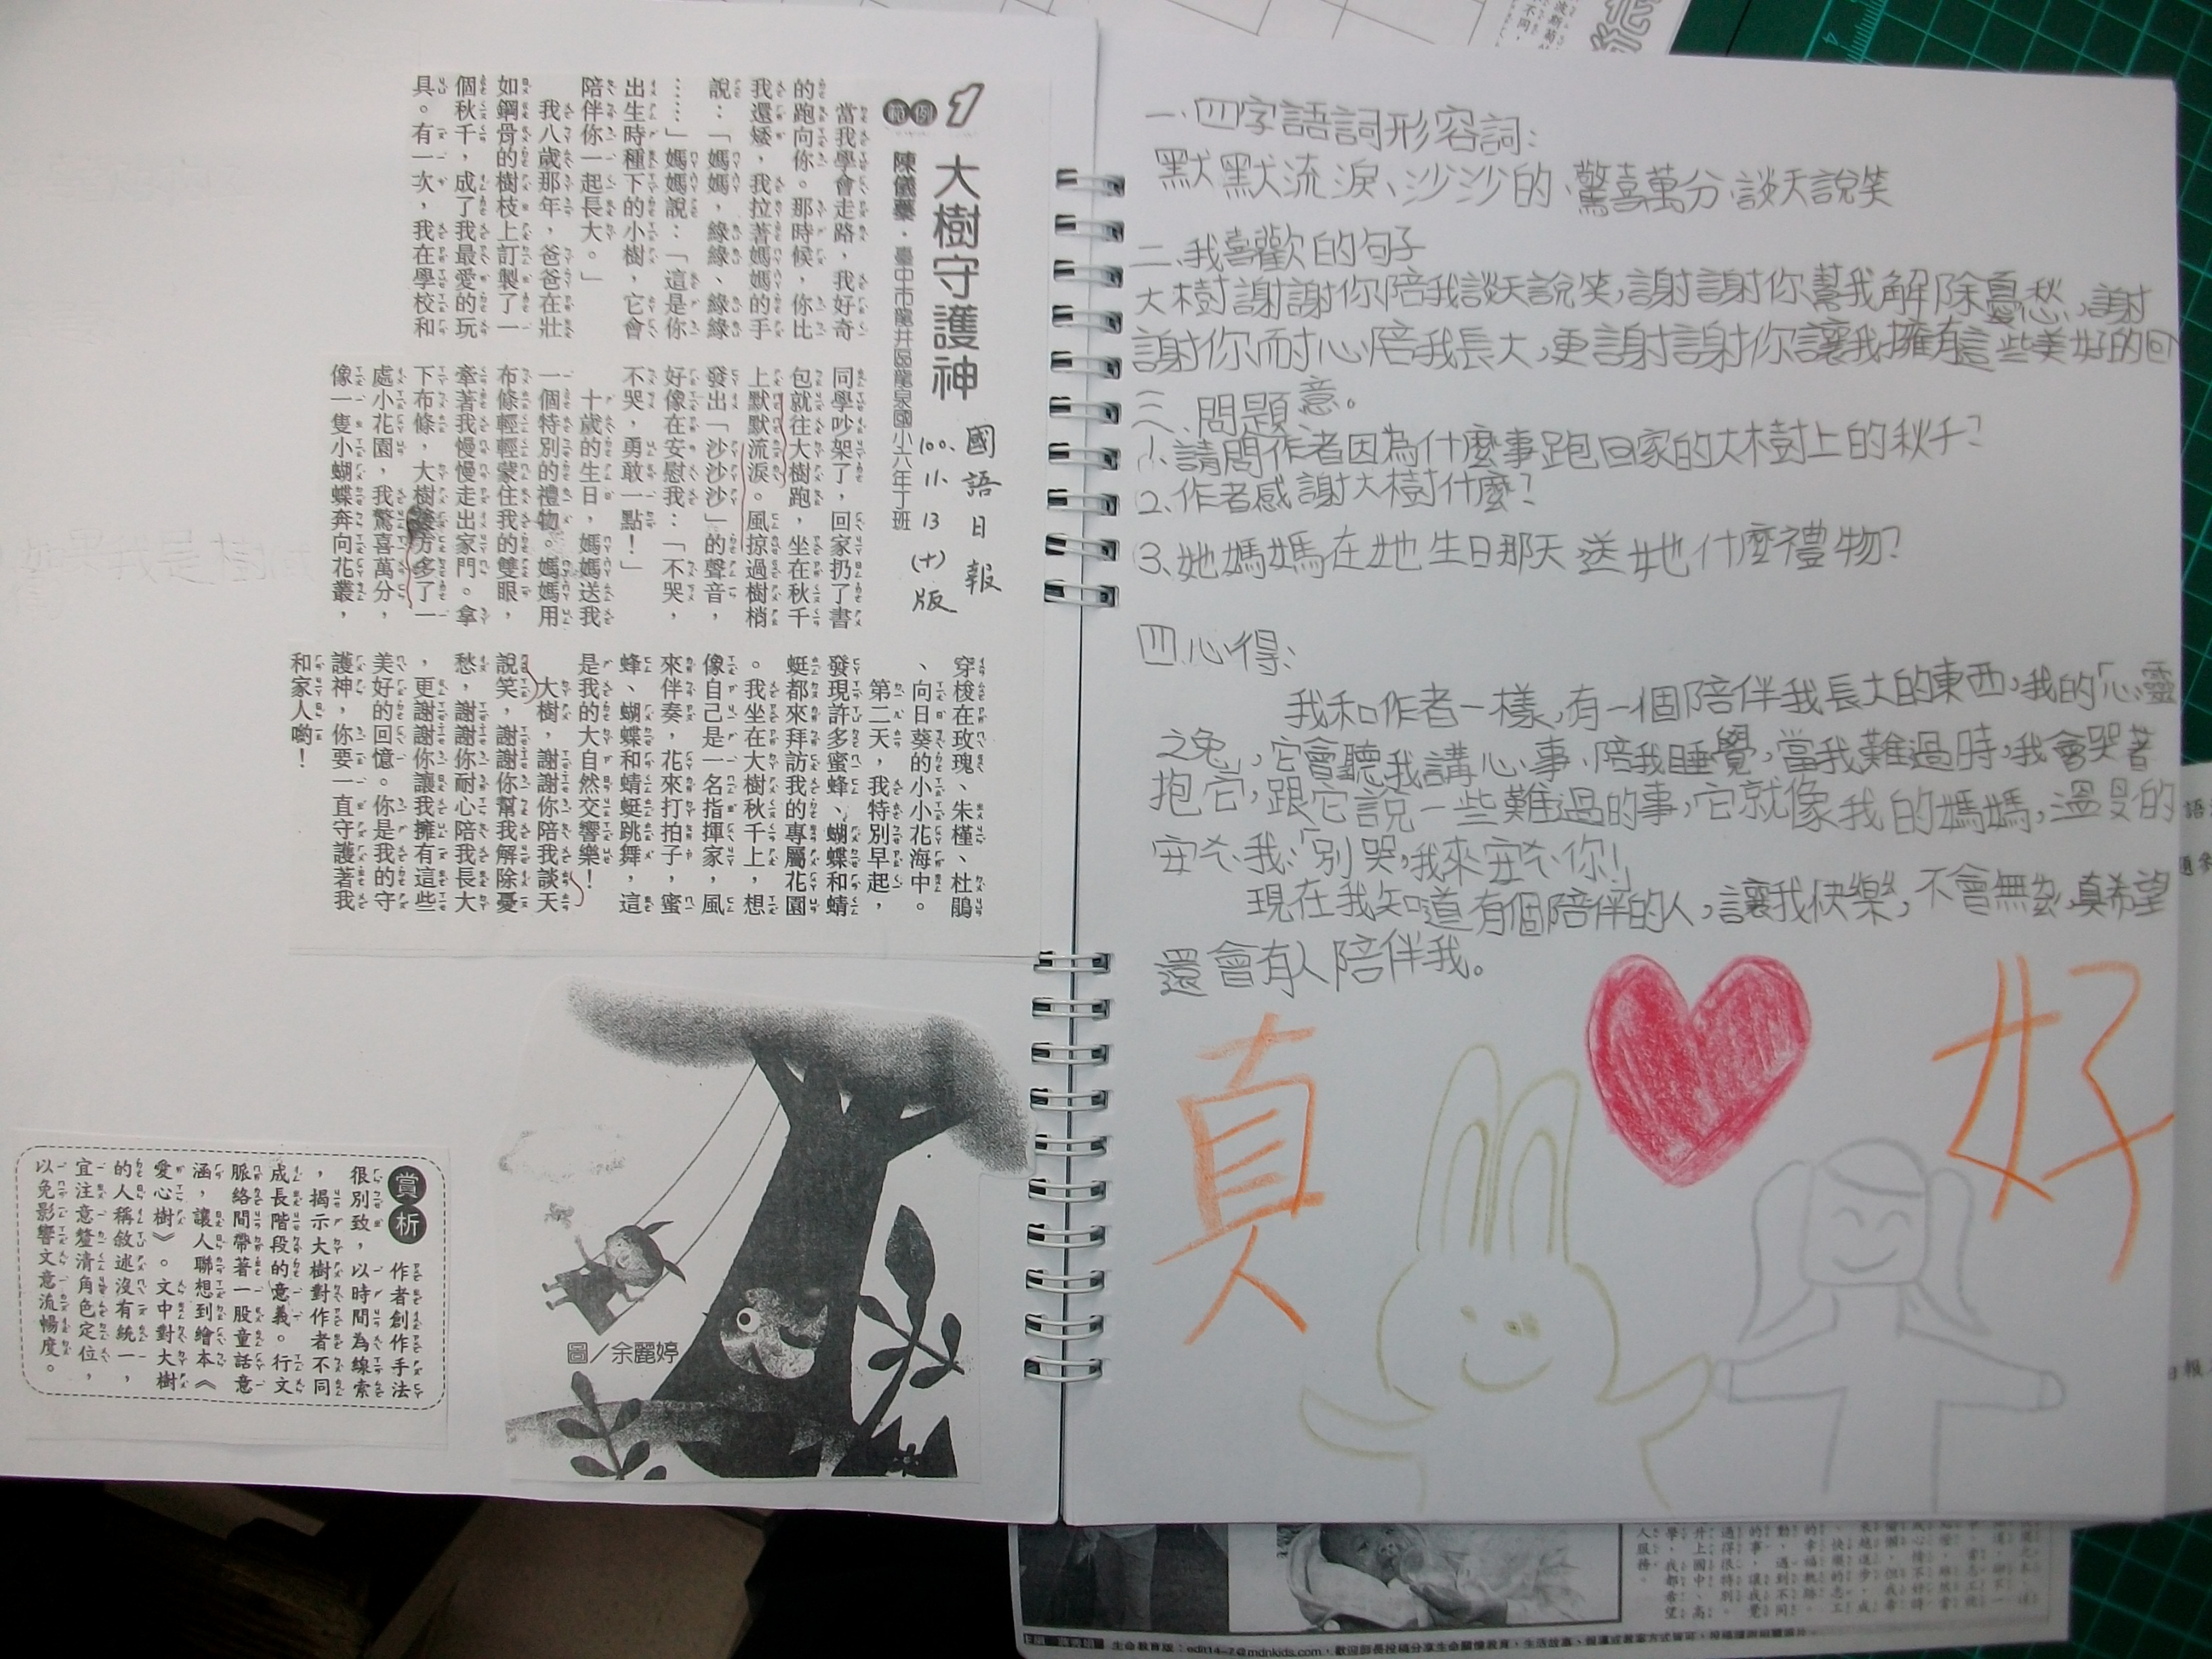 1
範例
大樹守護神
陳儀蓁．臺中市龍井區龍泉國小六年丁班
國語日報
100.11.13(十)版
當我學會走路，我好奇
的跑向你。那時候，你比
我還矮，我拉著媽媽的手
說：「媽媽，綠綠、綠綠
……」媽媽說：「這是你
出生時種下的小樹，它會
陪伴你一起長大。」
我八歲那年，爸爸在壯
如鋼骨的樹枝上訂製了一
個秋千，成了我最愛的玩
具。有一次，我在學校和
同學吵架了，回家扔了書
包就往大樹跑，坐在秋千
上默默流淚。風掠過樹梢
發出「沙沙沙」的聲音，
好像在安慰我：「不哭，
不哭，勇敢一點！」
十歲的生日，媽媽送我
一個特別的禮物。媽媽用
布條輕輕蒙住我的雙眼，
牽著我慢慢走出家門。拿
下布條，大樹後方多了一
處小花園，我驚喜萬分，
像一隻小蝴蝶奔向花叢，
穿梭在玫瑰、朱槿、杜鵑
、向日葵的小小花海中。
第二天，我特別早起，
發現許多蜜蜂、蝴蝶和蜻
蜓都來拜訪我的專屬花園
。我坐在大樹秋千上，想
像自己是一名指揮家，風
來伴奏，花來打拍子，蜜
蜂、蝴蝶和蜻蜓跳舞，這
是我的大自然交響樂！
大樹，謝謝你陪我談天
說笑，謝謝你幫我解除憂
愁，謝謝你耐心陪我長大
，更謝謝你讓我擁有這些
美好的回憶。你是我的守
護神，你要一直守護著我
和家人喲！
圖／余麗婷
賞析
作者創作手法
很別致，以時間為線索
，揭示大樹對作者不同
成長階段的意義。行文
脈絡間帶著一股童話意
涵，讓人聯想到繪本《
愛心樹》。文中對大樹
的人稱敘述沒有統一，
宜注意釐清角色定位，
以免影響文意流暢度。
如果我是樹
一、四字語詞形容詞：
默默流淚、沙沙的、驚喜萬分、談天說笑
二、我喜歡的句子
大樹謝謝你陪我談天說笑，謝謝你幫我解除憂愁，謝
謝你耐心陪我長大，更謝謝你讓我擁有這些美好的回
意。
三、問題
1、請問作者因為什麼事跑回家的大樹上的秋千？
2、作者感謝大樹什麼？
3、她媽媽在她生日那天送她什麼禮物？
四、心得：
我和作者一樣，有一個陪伴我長大的東西，我的「心靈
之兔」，它會聽我講心事、陪我睡覺，當我難過時，我會哭著
抱它，跟它說一些難過的事，它就像我的媽媽，溫ㄖㄡˊ的
安ㄨㄟˋ我：「別哭，我來安ㄨㄟˋ你！」
現在我知道有個陪伴的人，讓我快樂，不會無ㄌㄧㄠˊ，真希望
還會有人陪伴我。
真
好
生命教育版：edit14-7@mdnkids.com，歡迎師長投稿分享生命關懷教育，生活故事、報導或教案方式皆可，投稿請附組圖照片。